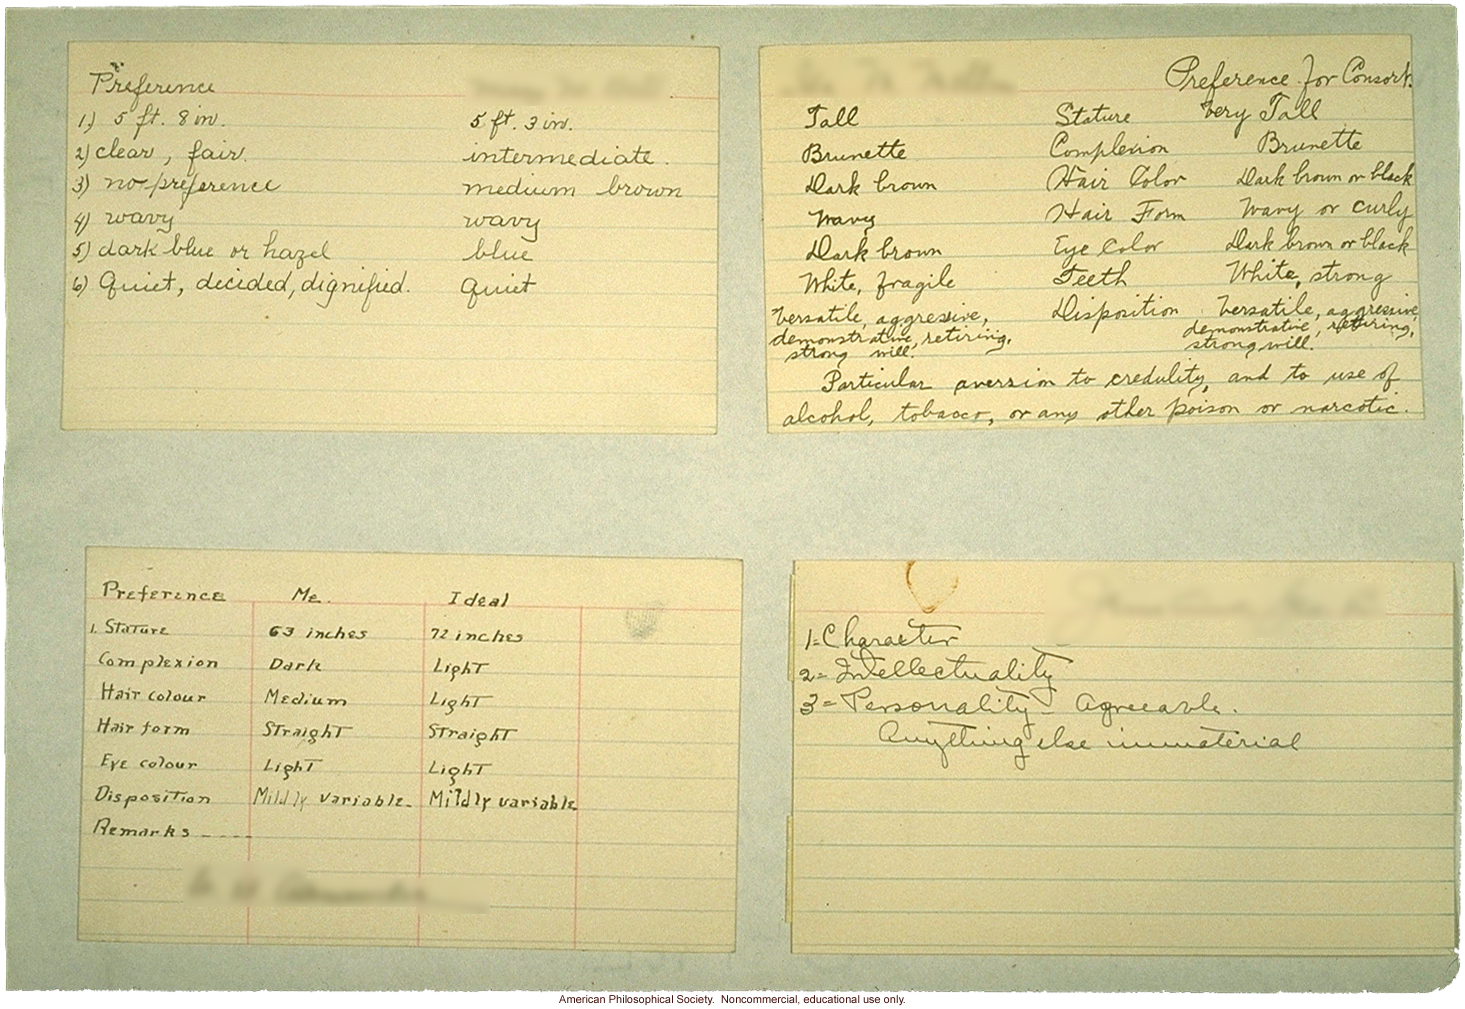 Preference
1) 5 ft. 8 in. 5 ft. 3 in.
2) clear, fair. intermediate.
3) no preference medium brown
4) wavy wavy
5) dark blue or hazel blue
6) Quiet, decided, dignified. Quiet
Preference for Consort.
Tall Stature Very Tall
Brunette Complexion Brunette
Dark brown Hair Color Dark brown or black
Wavy Hair Form Wavy or curly
Dark brown Eye Color Dark brown or black
White, fragile Teeth White, strong
Versatile, aggressive, Disposition Versatile, aggressive,
demonstrative, retiring, demonstrative, retiring,
strong will. strong will.
Particular aversion to credulity, and to use of
alcohol, tobacco, or any other poison or narcotic.
Preference Me. Ideal
1. Stature 63 inches 72 inches
Complexion Dark Light
Hair colour Medium Light
Hair form Straight Straight
Eye colour Light Light
Disposition Mildly variable Mildly variable
Remarks ----
1=Character
2=Intellectuality
3=Personality - Agreeable.
Anything else immaterial
American Philosophical Society. Noncommercial, educational use only.